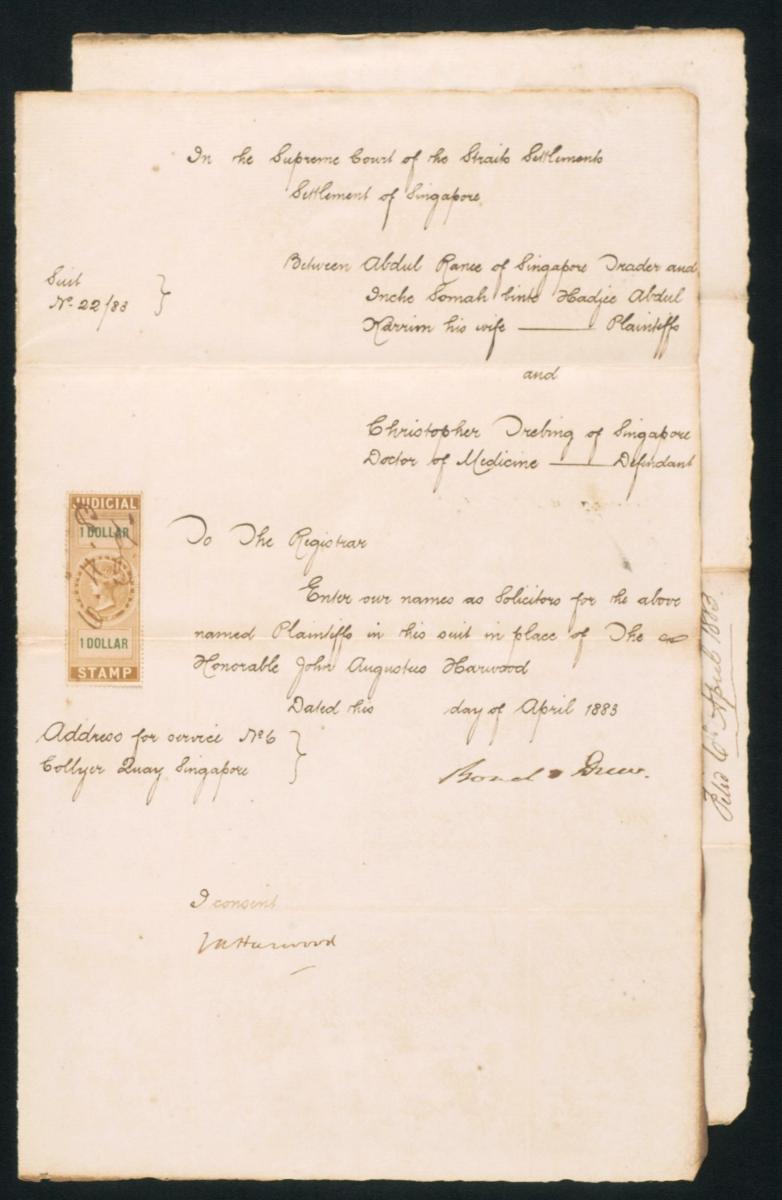 In the Supreme Court of the Straits Settlements
Settlement of Singapore
Suit
No. 22/83
Between Abdul Ranee of Singapore Trader and
Inche Somah binte Hadjee Abdul
Karrim his wife ——— Plaintiffs
and
Christopher Trebing of Singapore
Doctor of Medicine ——— Defendant
JUDICIAL
1 DOLLAR
1 DOLLAR
STAMP
To The Registrar
Enter our names as Solicitors for the above
named Plaintiffs in this suit in place of The
Honorable John Augustus Harwood
Dated this day of April 1883
Address for service No 6
Collyer Quay Singapore
Bond & Drew.
I consent
J A Harwood
April 1883.